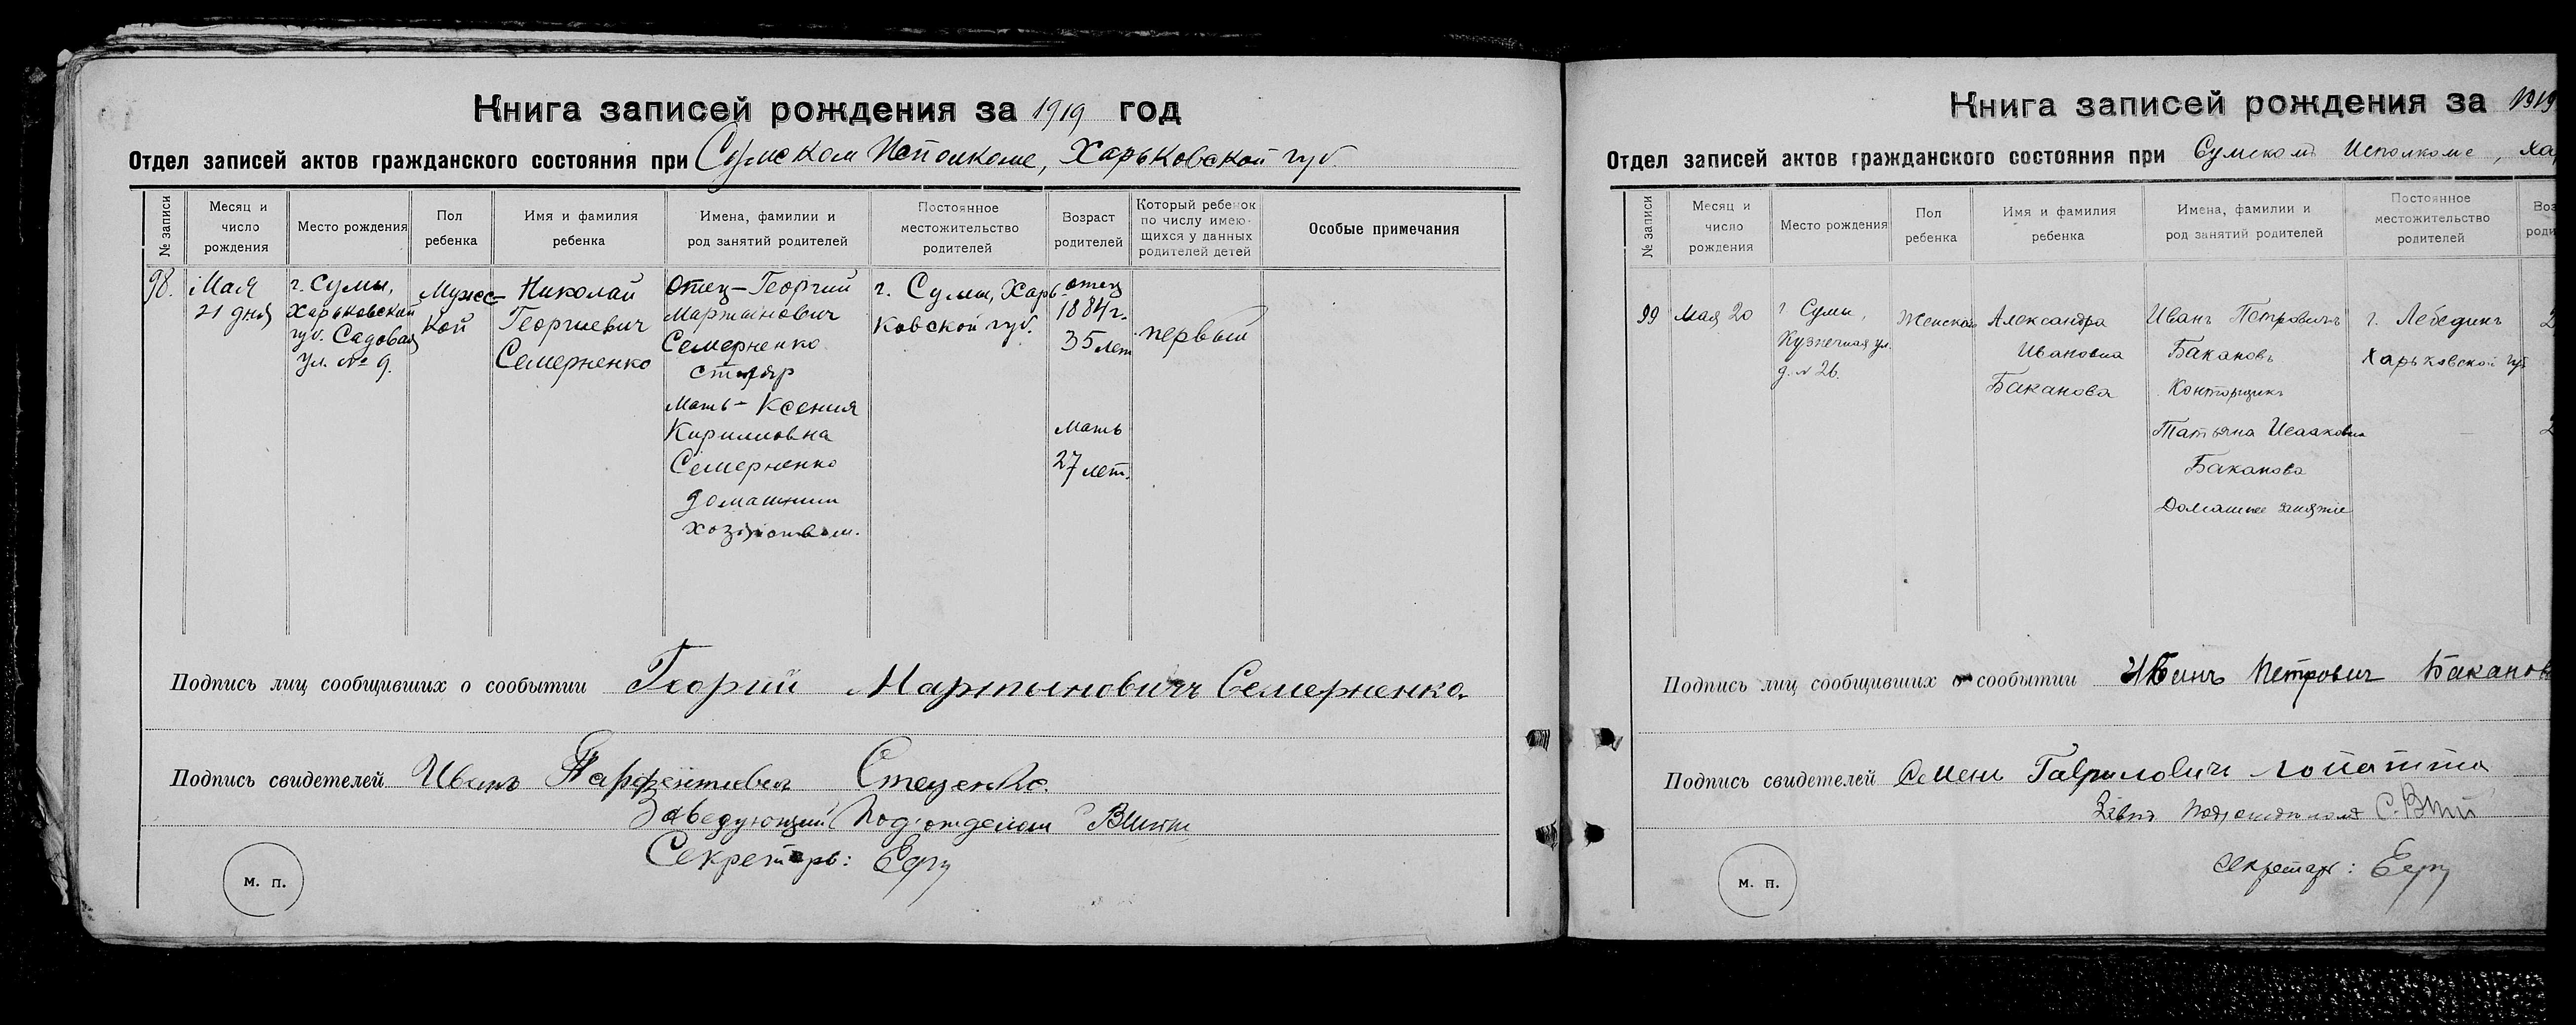 Книга записей рождения за 1919 год
Отдел записей актов гражданского состояния при Сумском Исполкоме, Харьковской губ.
№ записи
Месяц и
число
рождения
Место рождения
Пол
ребенка
Имя и фамилия
ребенка
Имена, фамилии и
род занятий родителей
Постоянное
местожительство
родителей
Возраст
родителей
Который ребенок
по числу имею-
щихся у данных
родителей детей
Особые примечания
98.
Мая
21 дня
г. Сумы,
Харьковской
губ. Садовая
ул. № 9.
Мужс-
кой
Николай
Георгиевич
Семерненко
Отец - Георгий
Мартынович
Семерненко
столяр
Мать - Ксения
Кирилловна
Семерненко
домашним
хозяйством.
г. Сумы, Харь-
ковской губ.
отец
1884 г.
35 лет
мать
27 лет.
первый
Подпись лиц сообщивших о сообытии Георгий Мартыновичъ Семерненко.
Подпись свидетелей Иванъ Парфентиевич Стеценко.
Заведующий Подотделом
Секретарь:
м. п.
Книга записей рождения за 1919
Отдел записей актов гражданского состояния при Сумском Исполкоме, Ха
№ записи
Месяц и
число
рождения
Место рождения
Пол
ребенка
Имя и фамилия
ребенка
Имена, фамилии и
род занятий родителей
Постоянное
местожительство
родителей
Воз
роди
99
Мая 20
г Сумы,
Кузнечная ул.
д. № 26.
Женской
Александра
Ивановна
Баканова
Иванъ Петровичъ
Бакановъ
Конторщикъ
Татьяна Исааковна
Баканова
Домашнее занятие
г. Лебединъ
Харьковской губ
2
2
Подпись лиц сообщивших о сообытии Иванъ Петрович Баканов
Подпись свидетелей Семен Гаврилович Лопатта
Завед. Подотделом
Секретарь:
м. п.